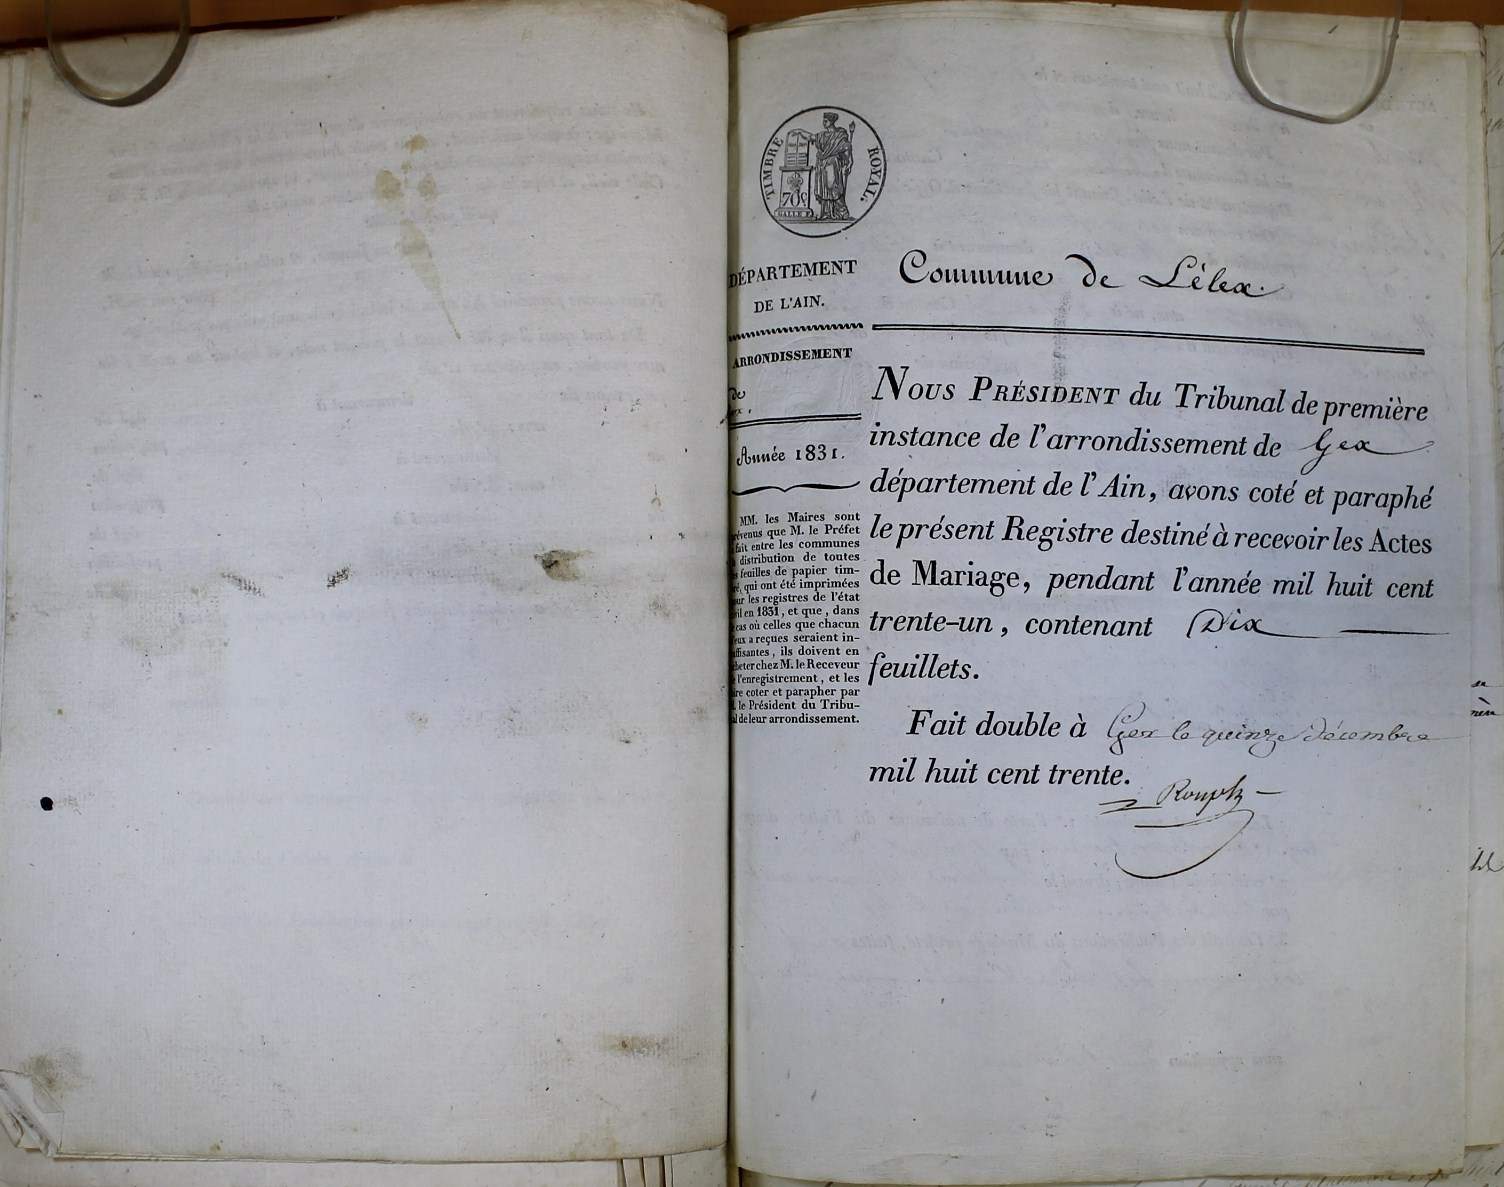 TIMBRE ROYAL.
70c
DÉPARTEMENT
DE L'AIN.
ARRONDISSEMENT
de
Année 1831.
MM. les Maires sont
que M. le Préfet
fait entre les communes
distribution de toutes
feuilles de papier tim-
qui ont été imprimées
les registres de l'état
en 1831, et que, dans
cas où celles que chacun
a reçues seraient in-
ils doivent en
chez M. le Receveur
l'enregistrement, et les
coter et parapher par
le Président du Tribu-
de leur arrondissement.
Commune de Lélex.
NOUS PRÉSIDENT du Tribunal de première
instance de l'arrondissement de Gex
département de l'Ain, avons coté et paraphé
le présent Registre destiné à recevoir les Actes
de Mariage, pendant l'année mil huit cent
trente-un, contenant Dix
feuillets.
Fait double à Gex le quinze décembre
mil huit cent trente.